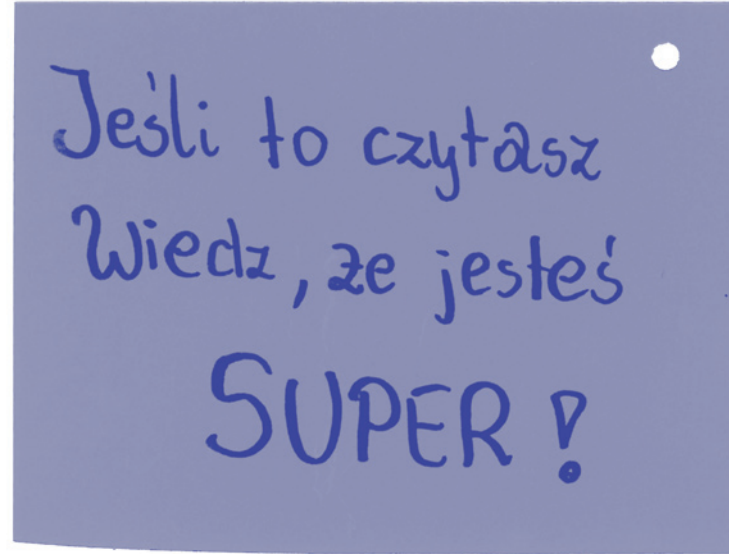 Jeśli to czytasz
Wiedz, że jesteś
SUPER!